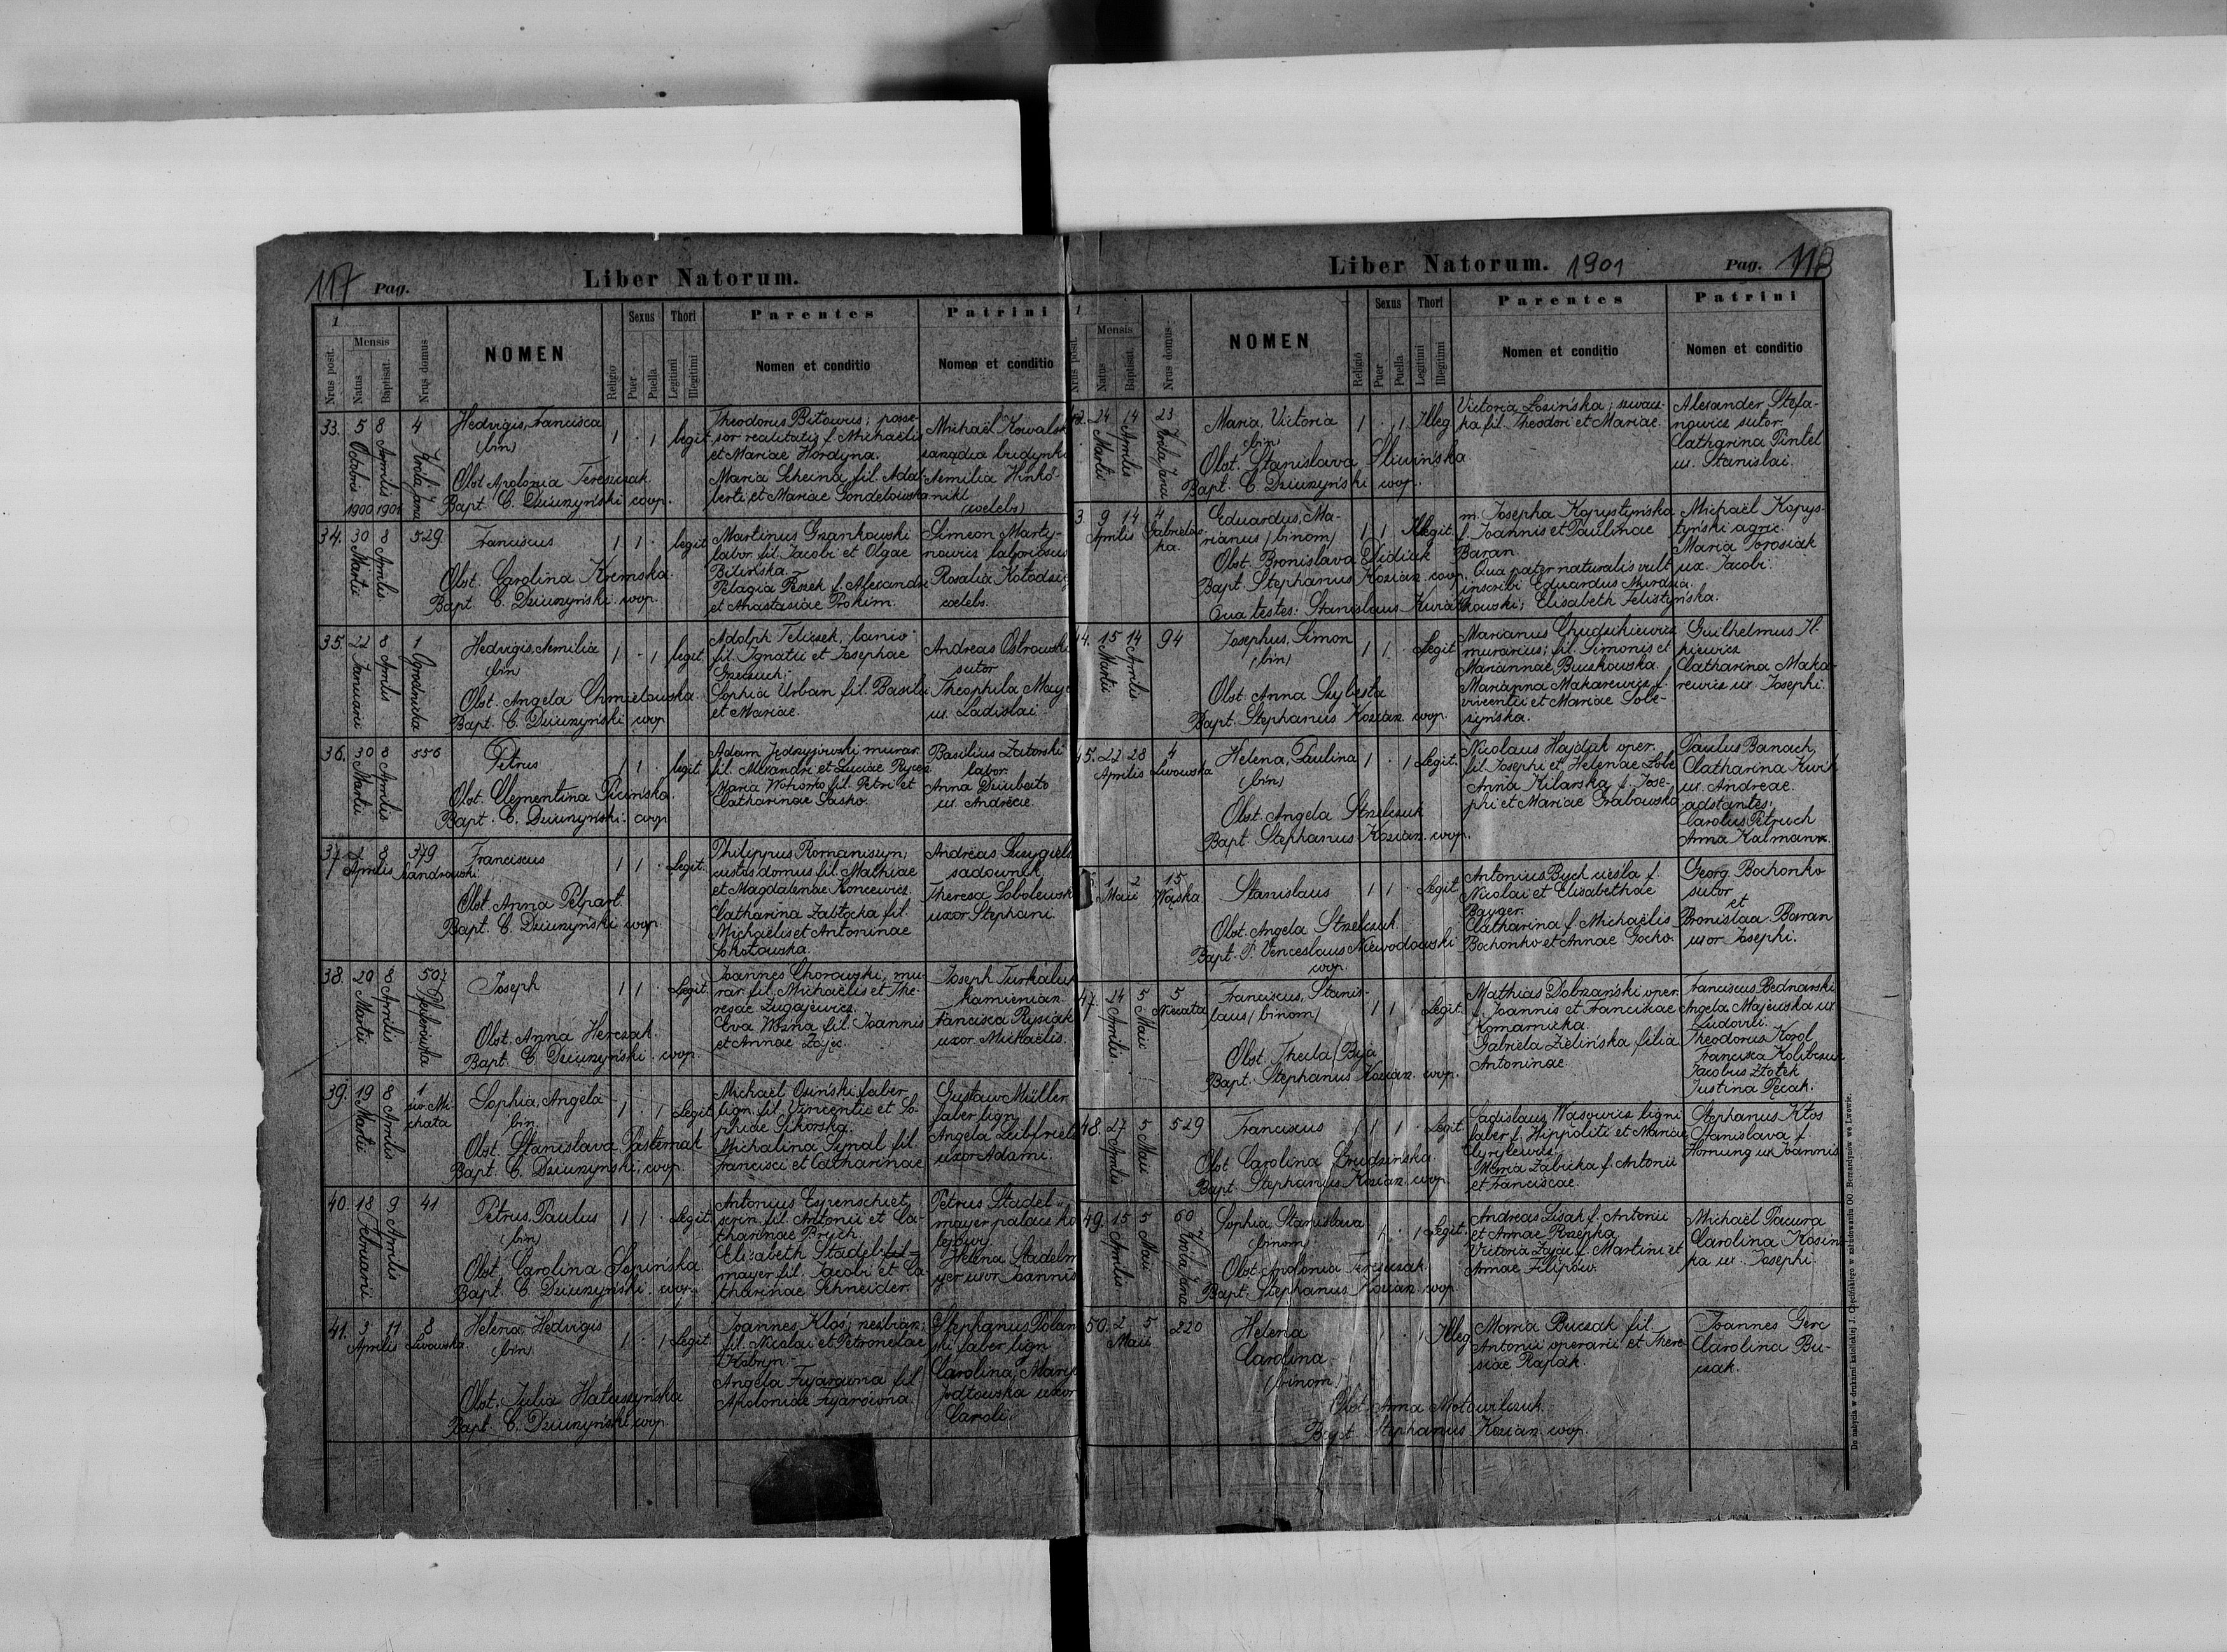 117 Pag.
Liber Natorum.
1
Nrus posit.
Mensis
Natus
Baptisat.
Nrus domus
NOMEN
Religio
Sexus
Puer
Puella
Thori
Legitimi
Illegitimi
Parentes
Nomen et conditio
Patrini
Nomen et conditio
33. 5 Octobris 1900 8 Aprilis 1901 4 Króla Jana
Hedvigis, Francisca
(bin)
Obst. Apolonia Tereszczak
Bapt. C. Dziurzyński coop.
1 · 1 legit.
Theodorus Bitowus; posse-
sor realitatis f. Michaelis
et Mariae Hordyna.
Maria Scheina, fil. Adal-
berti et Mariae Gondelowska
Michaël Kowalsk
Aemilia Winkö-
nikl
(coelebs)
34. 30 Martii 8 Aprilis 529
Franciscus
Obst. Carolina Kremska.
Bapt. C. Dziurzyński coop.
1 1 · legit
Martinus Grankowski
labor. fil. Jacobi et Olgae
Bilinska.
Pelagia Feszek f. Alexandri
et Anastasiae Prokim.
Simeon Marty-
nowicz laboriosus
Rosalia Kołodziej
coelebs.
35. 22 Januarii 8 Aprilis 1 Ogrodnicka
Hedvigis, Aemilia
(bin)
Obst. Angela Chmielowska
Bapt. C. Dziurzyński coop.
1 · 1 legit.
Adolph Teliczek, lanio
fil. Ignatii et Josephae
Grzeszuch.
Sophia Urban fil. Basilii
et Mariae.
Andreas Ostrowski
sutor
Theophila Maye
ux. Ladislai
36. 30 Martii 8 Aprilis 556
Petrus
Obst. Clementina Picinska.
Bapt. C. Dziurzyński coop.
1 1 · legit.
Adam Jędrzyjowski murar.
fil. Alexandri et Luciae Rycer
Maria Wohorko fil. Petri et
Catharinae Sasko.
Basilius Zastorski
labor.
Anna Dziubato
ux. Andreae.
37. 2 Aprilis 8 379
Franciscus
Obst. Anna Pelpart.
Bapt. C. Dziurzyński coop.
1 1 · Legit.
Philippus Romaniszyn;
custos domus fil. Mathiae
et Magdalenae Koncewicz.
Catharina Zabłocka fil.
Michaëlis et Antoninae
Sokołowska.
Andreas Szczygiels
sadownik,
Theresa Sobolewsk
uxor Stephani.
38. 20 Martii 8 Aprilis 507 Stefarówka
Joseph
Obst. Anna Herczak.
Bapt. C. Dziurzyński coop.
1 1 · Legit.
Joannes Chorowski, mu-
rar. fil. Michaëlis et The-
resae Zugajewicz.
Eva Woźna fil. Joannis
et Annae Zając.
Joseph Turkaluk
kamieniarz
Francisca Rysiak
uxor Michaëlis.
39. 19 Martii 8 Aprilis 1 św. Mi-
chała
Sophia, Angela
bin.
Obst. Stanislava Pasternak
Bapt. C. Dziurzyński, coop.
1 · 1 Legit
Michaël Osiński faber
lign. fil. Vincentii et So-
phiae Sikorska.
Michalina Symal fil.
Francisci et Catharinae
Gustaw Müller
faber lign.
Angela Leibfried
uxor Adami.
40. 18 Februarii 9 Aprilis 41
Petrus, Paulus
(bin)
Obst. Carolina Łopińska
Bapt. C. Dziurzyński. coop.
1 1 · Legit.
Antonius Espenschiet
fil. Antonii et Ca-
tharinae Brych.
Elisabeth Stadel-
mayer fil. Jacobi et Ca-
tharinae Schneider.
Petrus Stadel-
mayer palacz ko
lejowy.
Helena Stadelm
yer uxor Joannis
41. 3 Aprilis 11 8 Lwowska
Helena, Hedvigis
(bin)
Obst. Julia Hałuszyńska
Bapt. C. Dziurzyński coop.
1 · 1 Legit.
Joannes Kłoś;
fil. Nicolai et Petronelae
Kobryn.
Angela Fujarowna fil.
Apoloniae Fujarówna.
Stephanus Polan
ski faber lign.
Carolina, Maria
Jodłowska uxor
Caroli.
Liber Natorum. 1901
Pag. 118
1
Nrus posit.
Mensis
Natus
Baptisat.
Nrus domus
NOMEN
Religio
Sexus
Puer
Puella
Thori
Legitimi
Illegitimi
Parentes
Nomen et conditio
Patrini
Nomen et conditio
24 Martii 14 Aprilis 23 Króla Jana
Maria, Victoria
(bin)
Obst. Stanislava Sliwińska
Bapt. C. Dziurzyński coop.
1 · 1 Illeg
Victoria Łosińska; szwacz-
ka fil. Theodori et Mariae.
Alexander Stefa-
nowicz sutor.
Catharina Pintel
ux. Stanislai.
3. 9 Aprilis 14 4
Eduardus, Ma-
rianus (binom)
Obst. Bronislava Didiuk
Bapt. Stephanus Kozian. coop.
Qua testes: Stanislaus
1 1 · Illegit.
m. Josepha Kopystyńska
f. Joannis et Paulinae
Baran.
Qua pater naturalis vult
inscribi Eduardus
Elisabeth Felistyńska.
Michaël Kopys-
tyński agric.
Maria Torosiak
ux. Jacobi.
44. 15 Martii 14 Aprilis 94
Josephus, Simon
(bin)
Obst. Anna Szybista
Bapt. Stephanus Kozian. coop.
1 1 · Legit
Marianus Chudzikiewicz
murarius; fil. Simonis et
Mariannae Buczkowska.
Marianna Makarewicz f.
Vincentii et Mariae Sobe-
szyńska.
Guilhelmus Il-
kiewicz
Catharina Maka-
rewicz ux. Josephi.
45. 22 Aprilis 28 4 Lwowska
Helena, Paulina
(bin)
Obst. Angela Strzelczuk
Bapt. Stephanus Kozian. coop.
1 · 1 Legit.
Nicolaus Hajduk oper.
fil. Josephi et Helenae
Anna Kilarska f. Jose-
phi et Mariae Grabowska
Paulus Banach,
Catharina Kwik
ux. Andreae.
adstantes:
Carolus Petruch
Anna Kalman
1 Maii 2 15 Wąska
Stanislaus
Obst. Angela Strzelczuk
Bapt. P. Venceslaus Niewodowski
coop.
1 1 · Legit
Antonius Bych cieśla f.
Nicolai et Elisabethae
Bayger.
Catharina f. Michaëlis
Bochonko et Annae Gocko.
Georg. Bochonko
sutor
et
Bronislaa Baran
uxor Josephi.
47. 24 Aprilis 5 Maii 5
Franciscus, Stanis-
laus (binom)
Obst. Thecla Byja
Bapt. Stephanus Kozian. coop.
1 1 · Legit.
Mathias Dobrzański oper.
f. Joannis et Franciscae
Komarnicka.
Gabriela Zielińska filia
Antoninae.
Franciscus Bednarski
Angela Majewska ux.
Ludovici.
Theodorus Korol
Francisca Kolibczuk
Jacobus Złotek
Justina Pęcak.
48. 27 Aprilis 5 Maii 529
Franciscus
Obst. Carolina Grudzińska
Bapt. Stephanus Kozian. coop.
1 1 · Legit.
Ladislaus Wasowicz ligni
faber f. Hippoliti et Mariae
Cyrylewicz.
Maria Zabicka f. Antonii
et Franciscae.
Stephanus Kłos
Stanislava f.
Hornung ux. Joannis
49. 15 Aprilis 5 Maii 60 Króla Jana
Sophia, Stanislava
(binom)
Obst. Apolonia Tereszczak
Bapt. Stephanus Kozian. coop.
1 · 1 Legit.
Andreas Lisak f. Antonii
et Annae Rzepka
Victoria Zając f. Martini et
Annae Filipów.
Michaël Pacura
Carolina Kosin-
ka ux. Josephi.
50. 2 Maii 5 220
Helena
Carolina
(binom)
Obst. Anna Motowilczuk.
Bapt. Stephanus Kozian. coop.
1 · 1 Illeg
Maria Buczak fil.
Antonii operarii et There-
siae Rapak.
Joannes Gerc
Carolina Bu-
czak.
Do nabycia w drukarni katolickiej J. Chęcińskiego w zabudowaniu OO. Bernardynów we Lwowie.